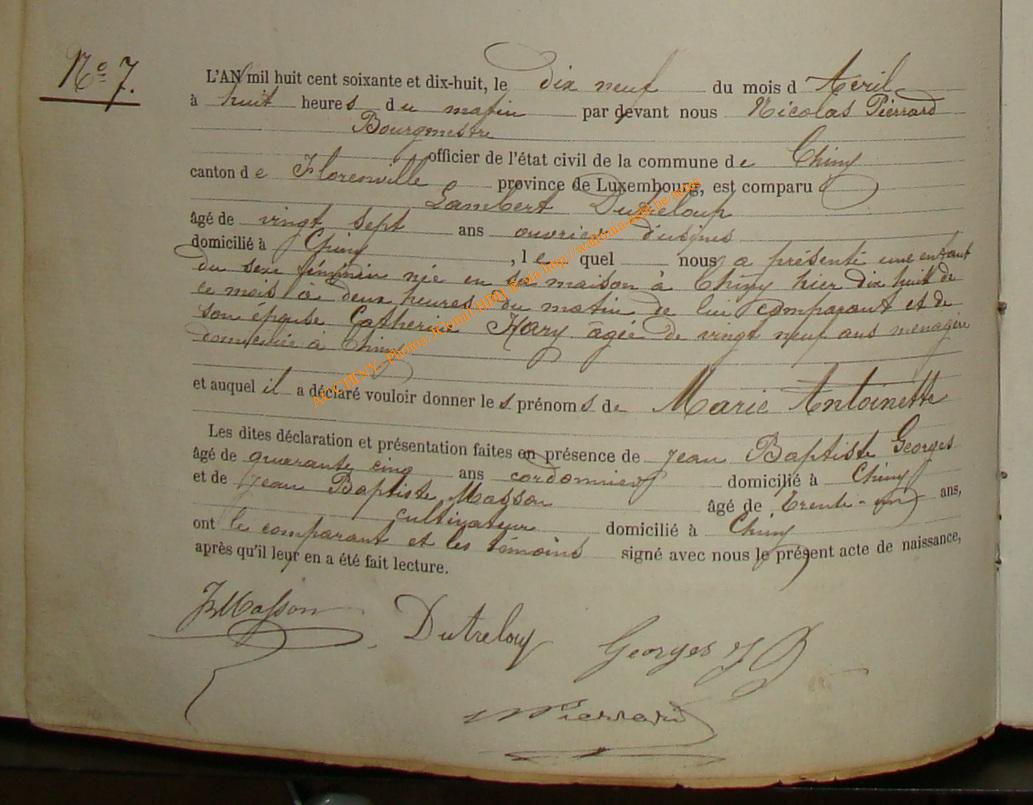 N° 7.
L'AN mil huit cent soixante et dix-huit, le dix neuf du mois d'Avril
à huit heures du matin par devant nous Nicolas Pierrard
Bourgmestre
officier de l'état civil de la commune de Chiny
canton de Florenville province de Luxembourg, est comparu
Lambert Dutreloup
âgé de vingt sept ans ouvrier d'usines
domicilié à Chiny, lequel nous a présenté une enfant
du sexe féminin née en sa maison à Chiny hier dix huit de
ce mois à deux heures du matin de lui comparant et de
son épouse Catherine Hary agée de vingt neuf ans ménagère
domiciliée à Chiny
et auquel il a déclaré vouloir donner les prénoms de Marie Antoinette
Les dites déclaration et présentation faites en présence de Jean Baptiste Georges
âgé de quarante cinq ans cordonnier domicilié à Chiny
et de Jean Baptiste Masson âgé de trente-un ans,
cultivateur domicilié à Chiny
ont le comparant et les témoins signé avec nous le présent acte de naissance,
après qu'il leur en a été fait lecture.
JBMasson Dutreloup Georges J B
N Pierrard